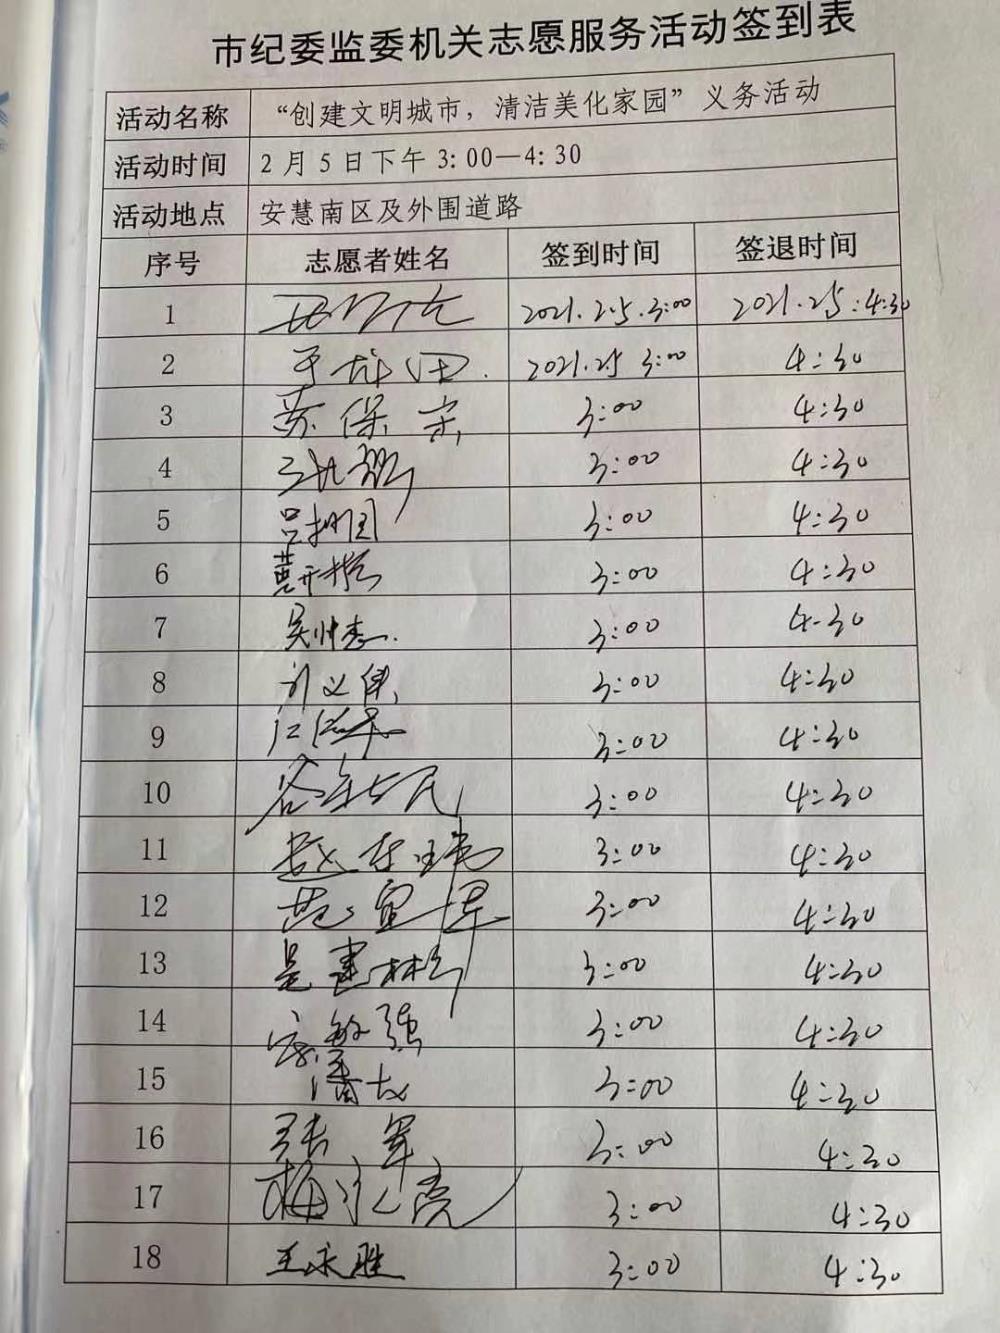 市纪委监委机关志愿服务活动签到表
活动名称 “创建文明城市，清洁美化家园”义务活动
活动时间 2月5日下午3:00—4:30
活动地点 安慧南区及外围道路
序号 志愿者姓名 签到时间 签退时间
1 2021.2.5.3:00 2021.2.5:4:30
2 2021.2.5 3:00 4:30
3 苏保宗 3:00 4:30
4 3:00 4:30
5 3:00 4:30
6 3:00 4:30
7 3:00 4-30
8 3:00 4:30
9 3:00 4:30
10 3:00 4:30
11 3:00 4:30
12 3:00 4:30
13 3:00 4:30
14 3:00 4:30
15 3:00 4:30
16 张军 3:00 4:30
17 3:00 4:30
18 王永胜 3:00 4:30